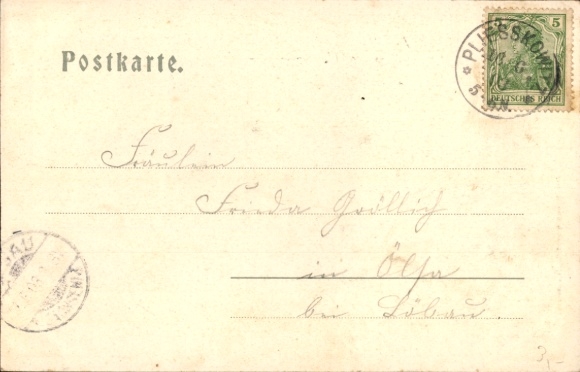 Postkarte.
5
DEUTSCHES REICH
* PLIESSKOWITZ
Fräulein
Frieda Gröllich
in Ölsa
bei Löbau.
3,-